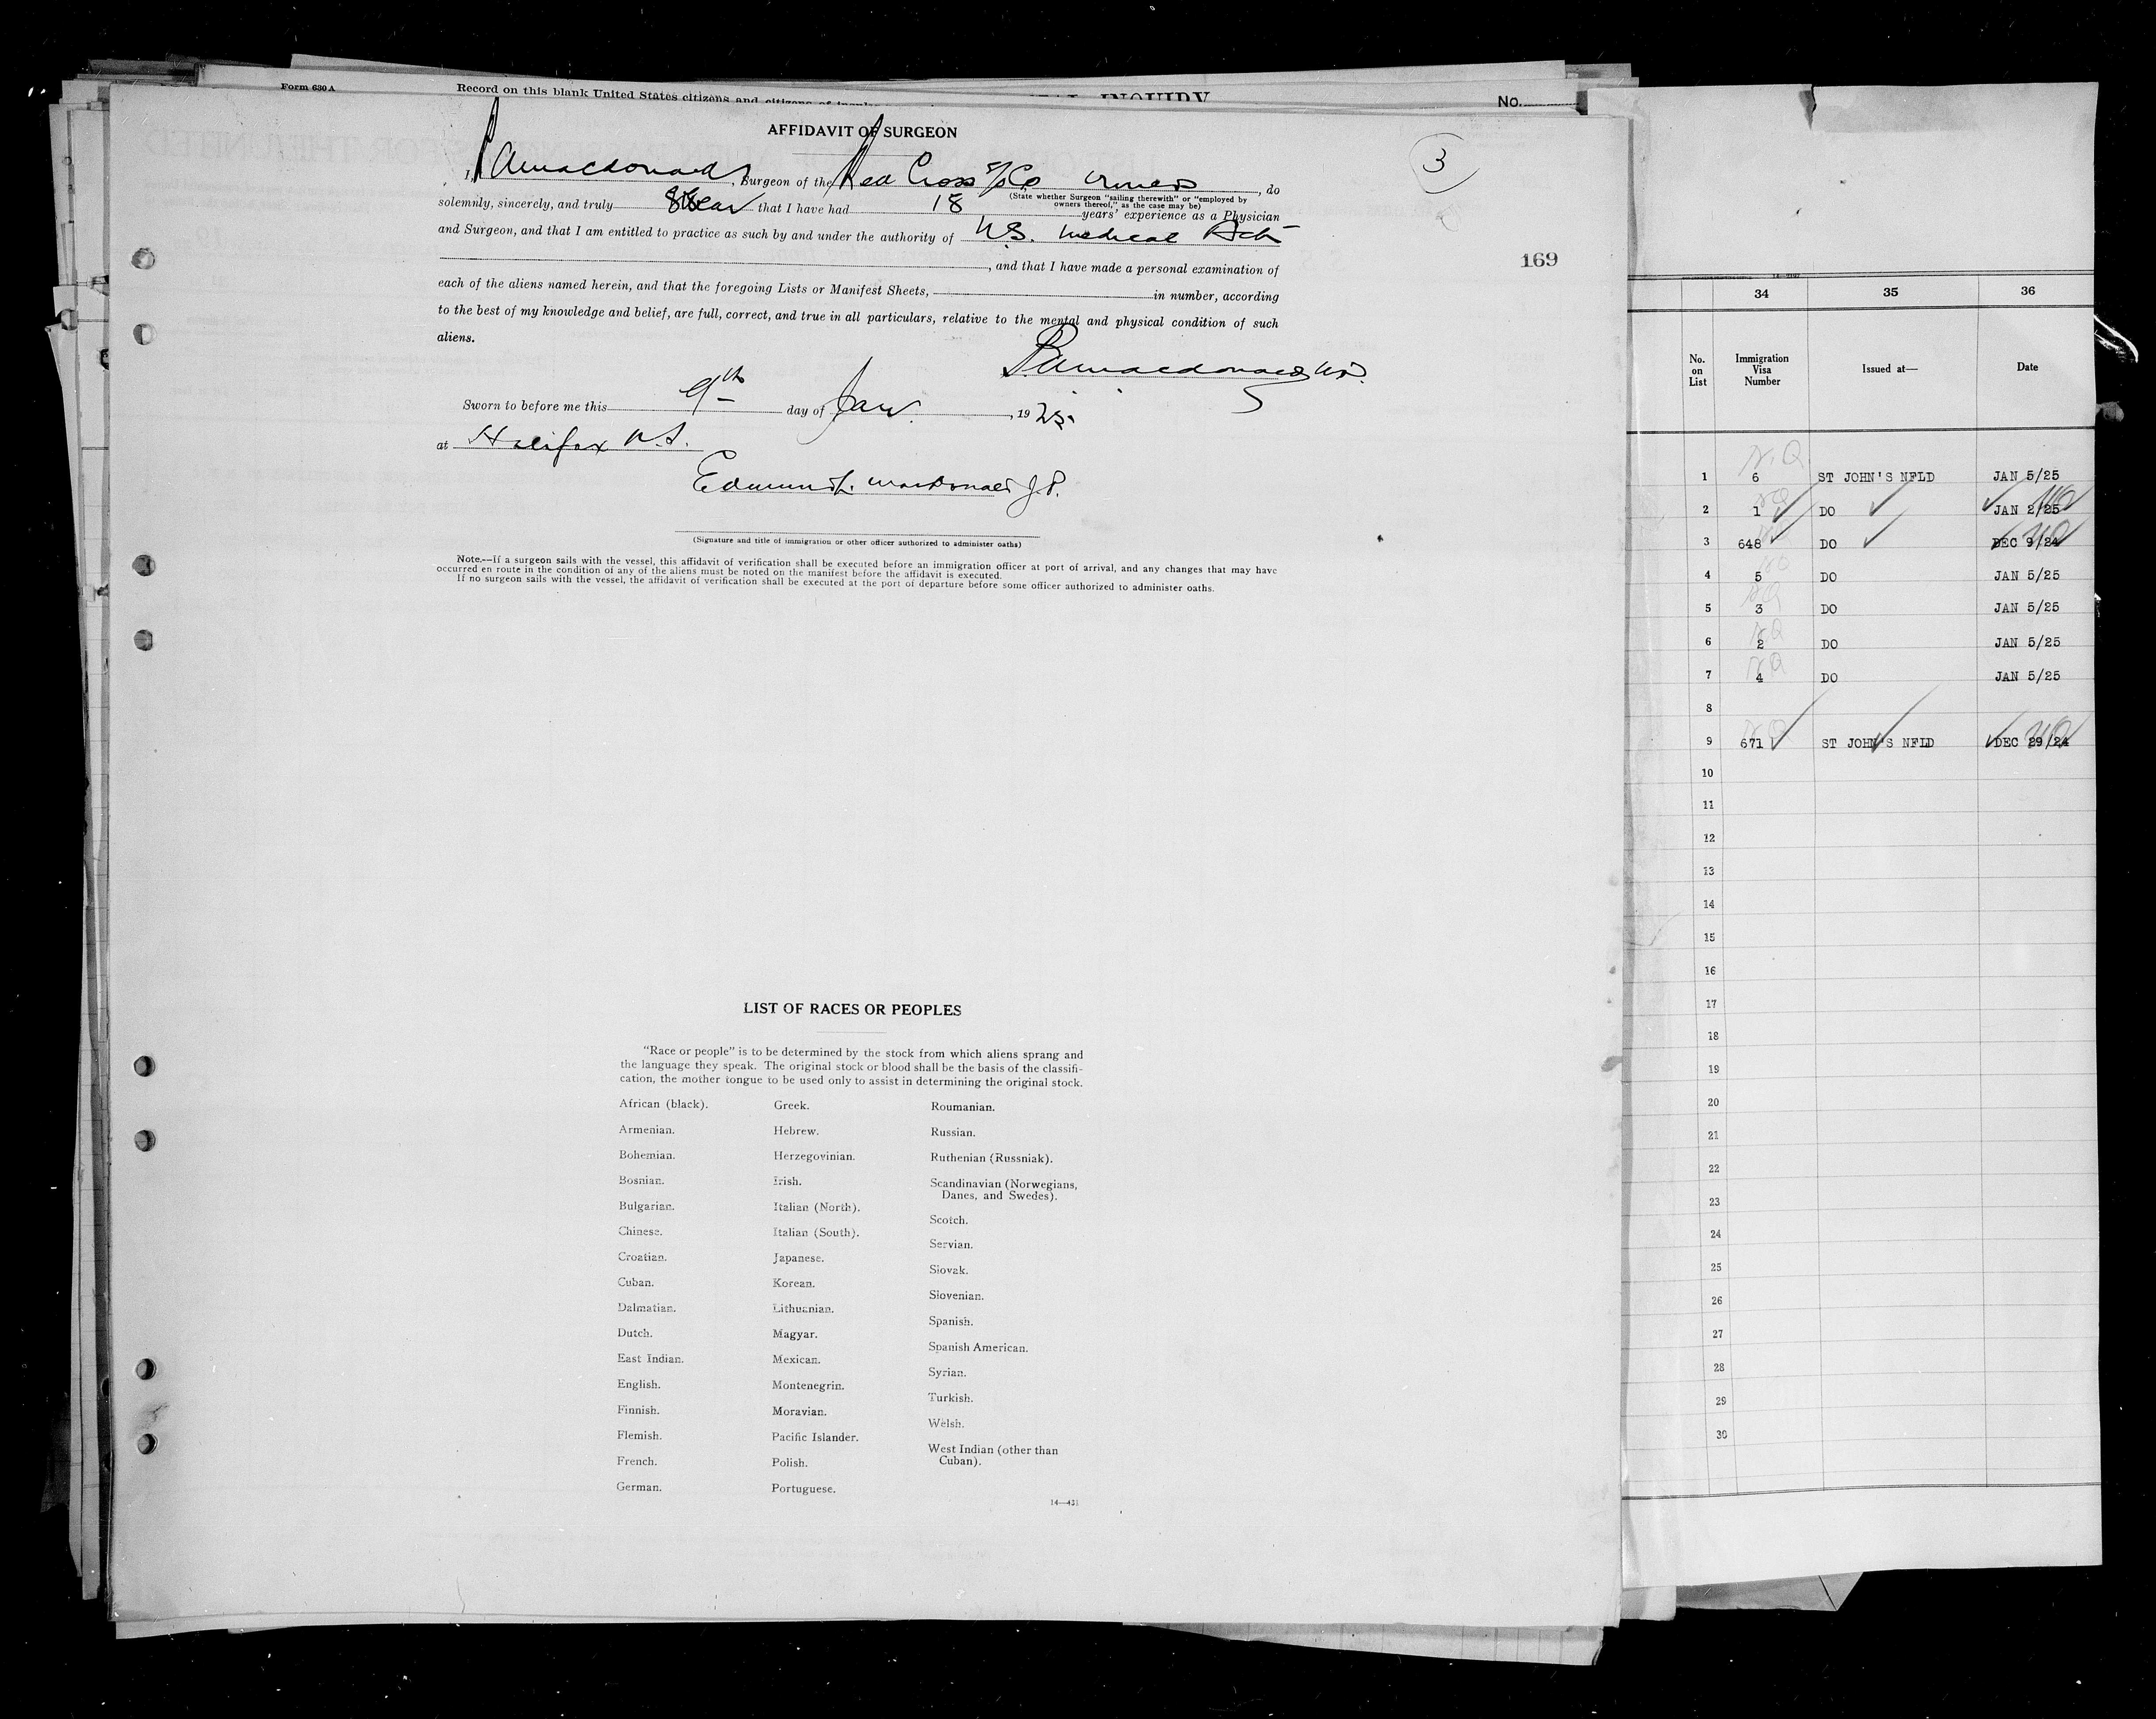 Form 630 A
Record on this blank United States citizens and citizens of
INQUIRY
No.
AFFIDAVIT OF SURGEON
3
I, Macdonald, Surgeon of the Red Cross S/S Co owners, do
(State whether Surgeon "sailing therewith" or "employed by
owners thereof," as the case may be)
solemnly, sincerely, and truly swear that I have had 18 years' experience as a Physician
and Surgeon, and that I am entitled to practice as such by and under the authority of N.S. Medical Act
, and that I have made a personal examination of
169
each of the aliens named herein, and that the foregoing Lists or Manifest Sheets, in number, according
to the best of my knowledge and belief, are full, correct, and true in all particulars, relative to the mental and physical condition of such
aliens.
Macdonald M.D.
Sworn to before me this 9th day of Jan. , 1925
at Halifax N.S.
Edmund L. MacDonald J.P.
(Signature and title of immigration or other officer authorized to administer oaths)
Note.—If a surgeon sails with the vessel, this affidavit of verification shall be executed before an immigration officer at port of arrival, and any changes that may have
occurred en route in the condition of any of the aliens must be noted on the manifest before the affidavit is executed.
If no surgeon sails with the vessel, the affidavit of verification shall be executed at the port of departure before some officer authorized to administer oaths.
LIST OF RACES OR PEOPLES
"Race or people" is to be determined by the stock from which aliens sprang and
the language they speak. The original stock or blood shall be the basis of the classifi-
cation, the mother tongue to be used only to assist in determining the original stock.
African (black).
Armenian.
Bohemian.
Bosnian.
Bulgarian.
Chinese.
Croatian.
Cuban.
Dalmatian.
Dutch.
East Indian.
English.
Finnish.
Flemish.
French.
German.
Greek.
Hebrew.
Herzegovinian.
Irish.
Italian (North).
Italian (South).
Japanese.
Korean.
Lithuanian.
Magyar.
Mexican.
Montenegrin.
Moravian.
Pacific Islander.
Polish.
Portuguese.
Roumanian.
Russian.
Ruthenian (Russniak).
Scandinavian (Norwegians,
Danes, and Swedes).
Scotch.
Servian.
Slovak.
Slovenian.
Spanish.
Spanish American.
Syrian.
Turkish.
Welsh.
West Indian (other than
Cuban).
14—431
34 35 36
No. on List Immigration Visa Number Issued at— Date
N.Q.
1 6 ST JOHN'S NFLD JAN 5/25
NQ
2 1 DO JAN 2/25 NQ
3 648 DO DEC 9/24 NQ
NQ
4 5 DO JAN 5/25
NQ
5 3 DO JAN 5/25
NQ
6 2 DO JAN 5/25
NQ
7 4 DO JAN 5/25
8
NQ
9 671 ST JOHN'S NFLD DEC 29/24 NQ
10
11
12
13
14
15
16
17
18
19
20
21
22
23
24
25
26
27
28
29
30